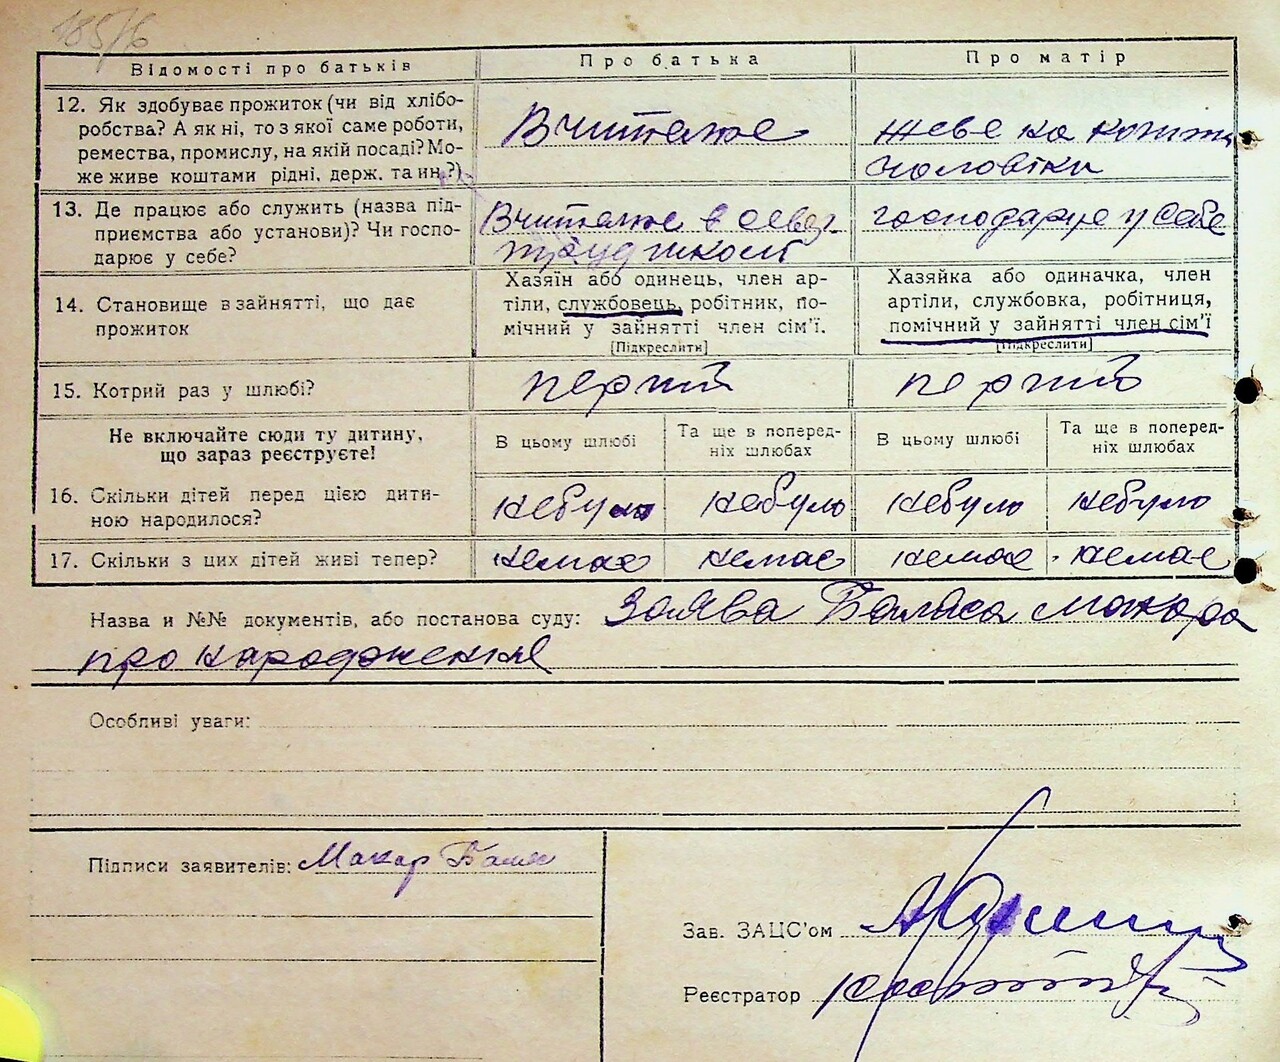 185/6
Відомості про батьків
Про батька
Про матір
12. Як здобуває прожиток (чи від хлібо-
робства? А як ні, то з якої саме роботи,
ремества, промислу, на якій посаді? Мо-
же живе коштами рідні, держ. та ин.?)
Вчителює
живе на кошти
чоловіка
13. Де працює або служить (назва під-
приємства або установи)? Чи госпо-
дарює у себе?
Вчителює в
трудшколі
господарює у себе
14. Становище в зайнятті, що дає
прожиток
Хазяїн або одинець, член ар-
тіли, службовець, робітник, по-
мічний у зайнятті член сім'ї.
[Підкреслити]
Хазяйка або одиначка, член
артіли, службовка, робітниця,
помічний у зайнятті член сім'ї
[Підкреслити]
15. Котрий раз у шлюбі?
перший
перший
Не включайте сюди ту дитину,
що зараз реєструєте!
В цьому шлюбі
Та ще в поперед-
ніх шлюбах
В цьому шлюбі
Та ще в поперед-
ніх шлюбах
16. Скільки дітей перед цією дити-
ною народилося?
небуло
небуло
небуло
небуло
17. Скільки з цих дітей живі тепер?
немає
немає
немає
немає
Назва и №№ документів, або постанова суду: Заява Баласа Макара
про народження
Особливі уваги:
Підписи заявителів: Макар Балас
Зав. ЗАЦС'ом
Реєстратор